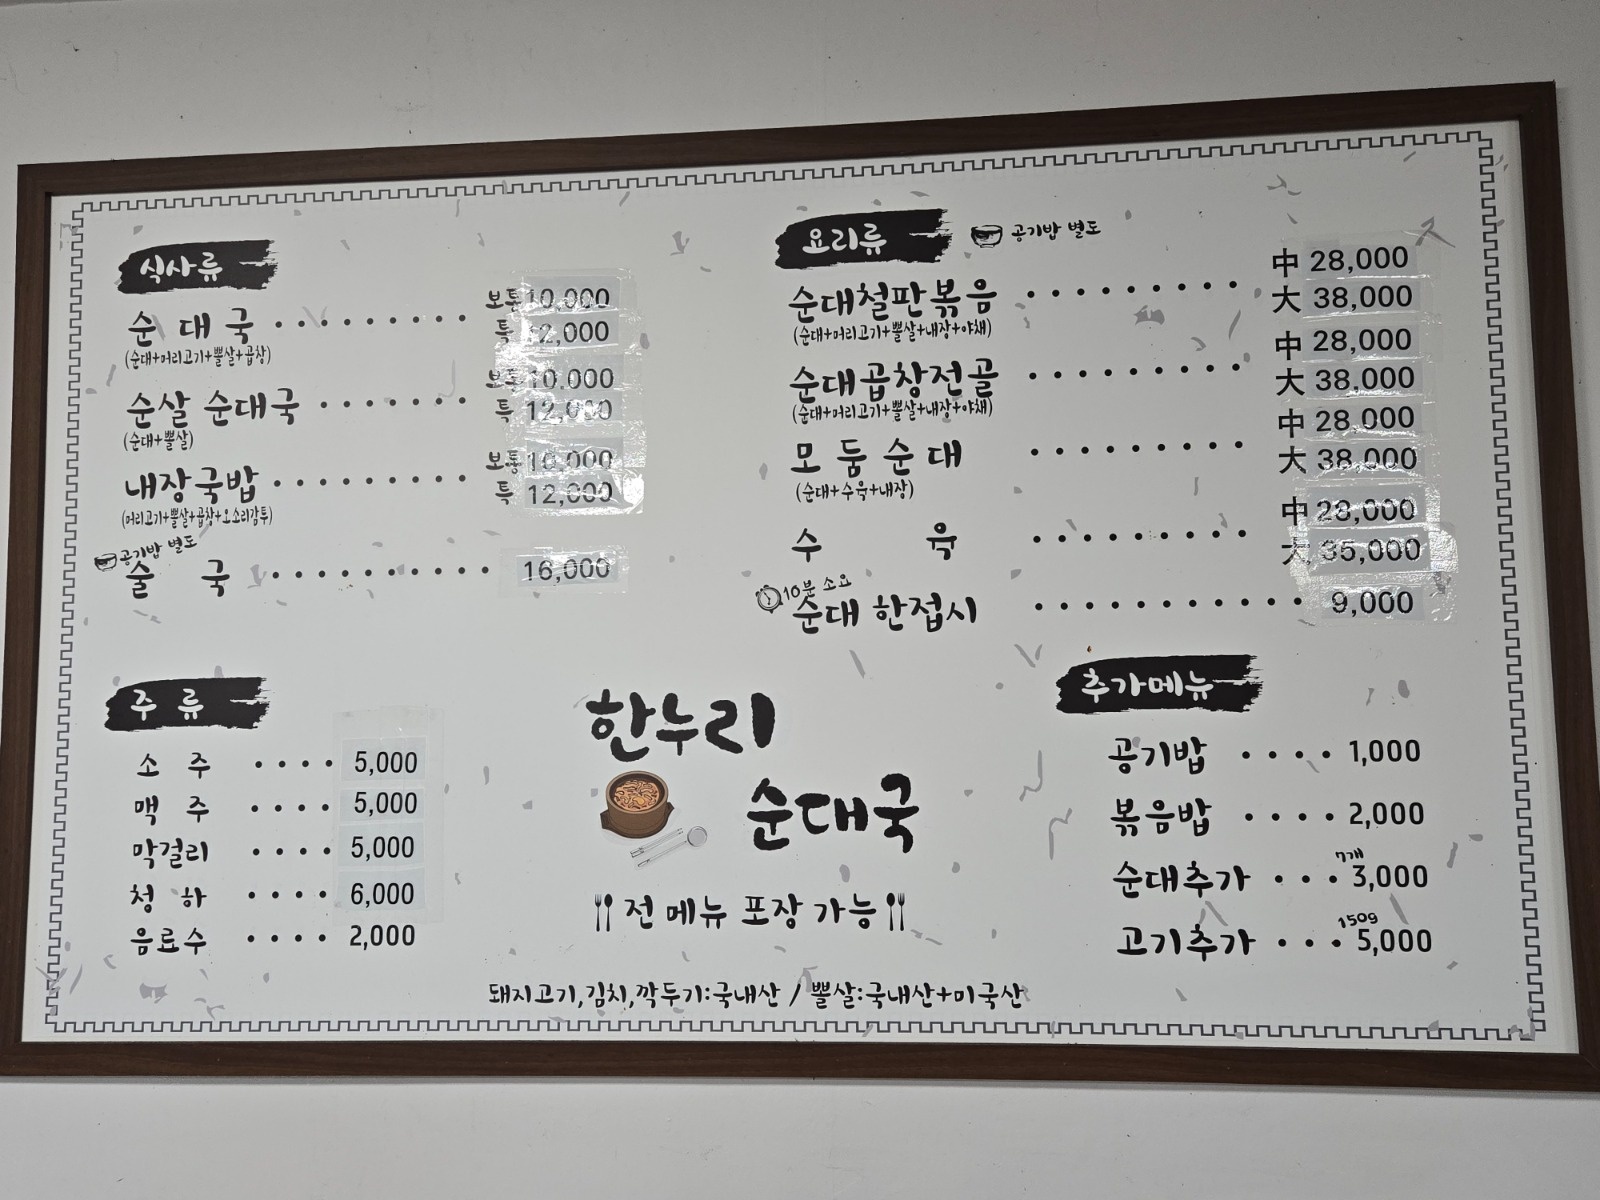 식사류
순 대 국 ········· 보통 10,000
특 12,000
(순대+머리고기+뽈살+곱창)
순살 순대국 ······· 보통 10,000
특 12,000
(순대+뽈살)
내장국밥 ········· 보통 10,000
특 12,000
(머리고기+뽈살+곱창+오소리감투)
공기밥 별도
술 국 ·········· 16,000
요리류 공기밥 별도
순대철판볶음 ········· 中 28,000
大 38,000
(순대+머리고기+뽈살+내장+야채)
순대곱창전골 ········· 中 28,000
大 38,000
(순대+머리고기+뽈살+내장+야채)
모 둠 순 대 ········· 中 28,000
大 38,000
(순대+수육+내장)
수 육 ········· 中 28,000
大 35,000
10분 소요
순대 한접시 ··········· 9,000
주 류
소 주 ···· 5,000
맥 주 ···· 5,000
막걸리 ···· 5,000
청 하 ···· 6,000
음료수 ···· 2,000
한누리
순대국
전 메뉴 포장 가능
추가메뉴
공기밥 ···· 1,000
볶음밥 ···· 2,000
7개
순대추가 ··· 3,000
150g
고기추가 ··· 5,000
돼지고기,김치,깍두기:국내산 / 뽈살:국내산+미국산